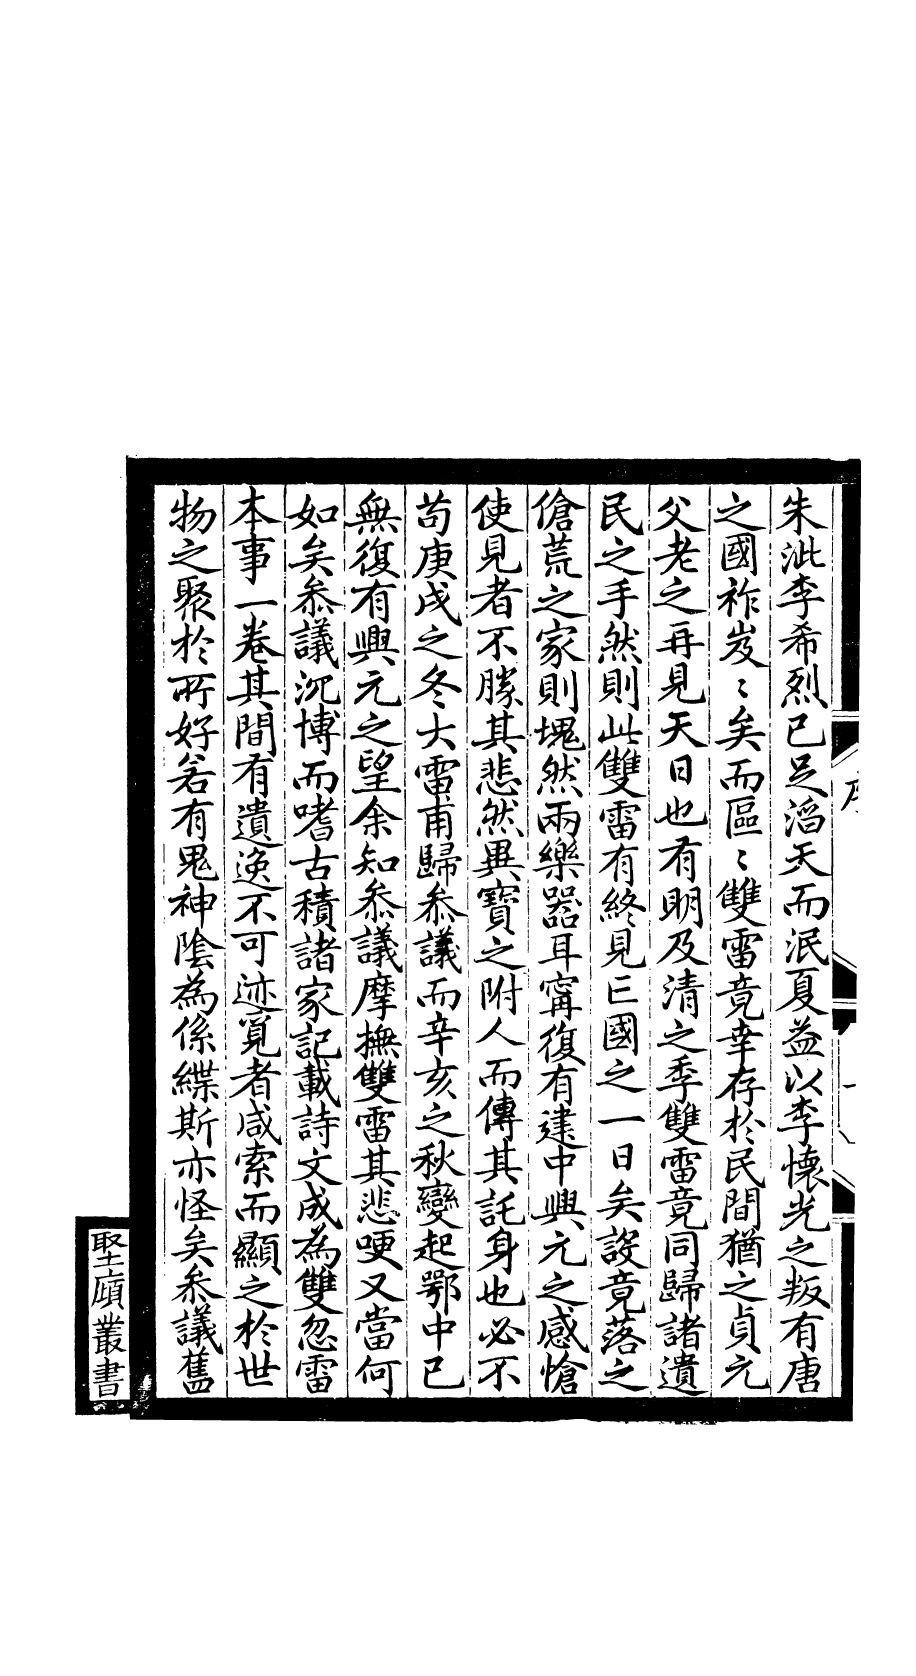 朱泚李希烈已足滔天而泯夏益以李懷光之叛有唐
之國祚岌〻矣而區〻雙雷竟幸存於民間猶之貞元
父老之再見天日也有明及清之季雙雷竟同歸諸遺
民之手然則此雙雷有終見亡國之一日矣設竟落之
傖荒之家則塊然兩樂器耳寗復有建中興元之感愴
使見者不勝其悲然異寶之附人而傳其託身也必不
苟庚戌之冬大雷甫歸叅議而辛亥之秋變起鄂中已
無復有興元之望余知叅議摩撫雙雷其悲哽又當何
如矣叅議沉博而嗜古積諸家記載詩文成為雙忽雷
本事一卷其間有遺逸不可迹覓者咸索而顯之於世
物之聚於所好若有鬼神陰為係緤斯亦怪矣叅議舊
序
一
堅廎叢書